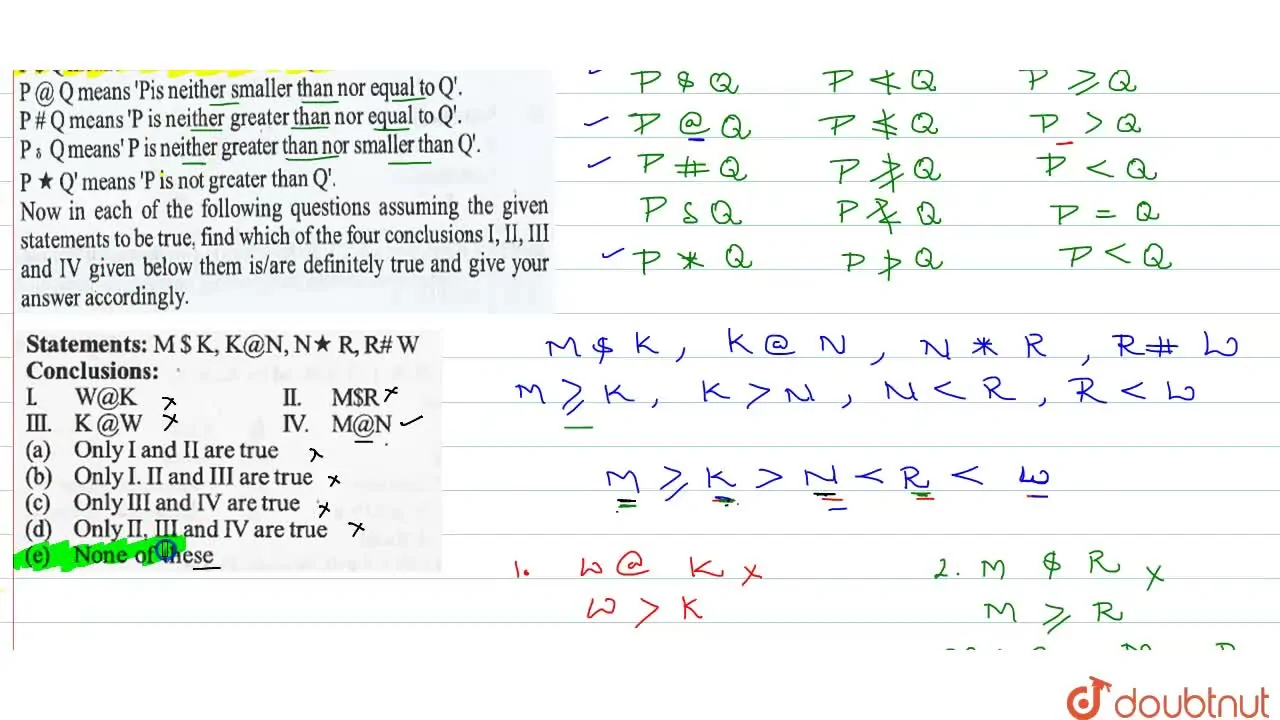 P @ Q means 'Pis neither smaller than nor equal to Q'.
P # Q means 'P is neither greater than nor equal to Q'.
P δ Q means' P is neither greater than nor smaller than Q'.
P ★ Q' means 'P is not greater than Q'.
Now in each of the following questions assuming the given
statements to be true, find which of the four conclusions I, II, III
and IV given below them is/are definitely true and give your
answer accordingly.
Statements: M $ K, K@N, N★ R, R# W
Conclusions:
I. W@K × II. M$R ×
III. K @W × IV. M@N ✓
(a) Only I and II are true ×
(b) Only I. II and III are true ×
(c) Only III and IV are true ×
(d) Only II, III and IV are true ×
(e) None of these
P $ Q P ≮ Q P ⩾ Q
✓ P @ Q P ≰ Q P > Q
✓ P # Q P ≱ Q P < Q
P δ Q P ≹ Q P = Q
✓ P * Q P ≯ Q P < Q
M $ K , K @ N , N * R , R # W
M ⩾ K , K > N , N < R , R < W
M ⩾ K > N < R < W
1. W @ K ×
W > K
2. M $ R ×
M ⩾ R
doubtnut